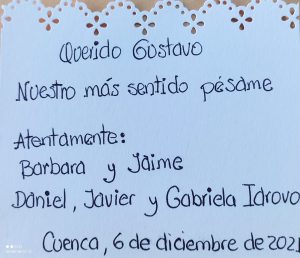 Querido Gustavo
Nuestro más sentido pésame
Atentamente:
Barbara y Jaime
Daniel, Javier y Gabriela Idrovo
Cuenca, 6 de diciembre de 2021